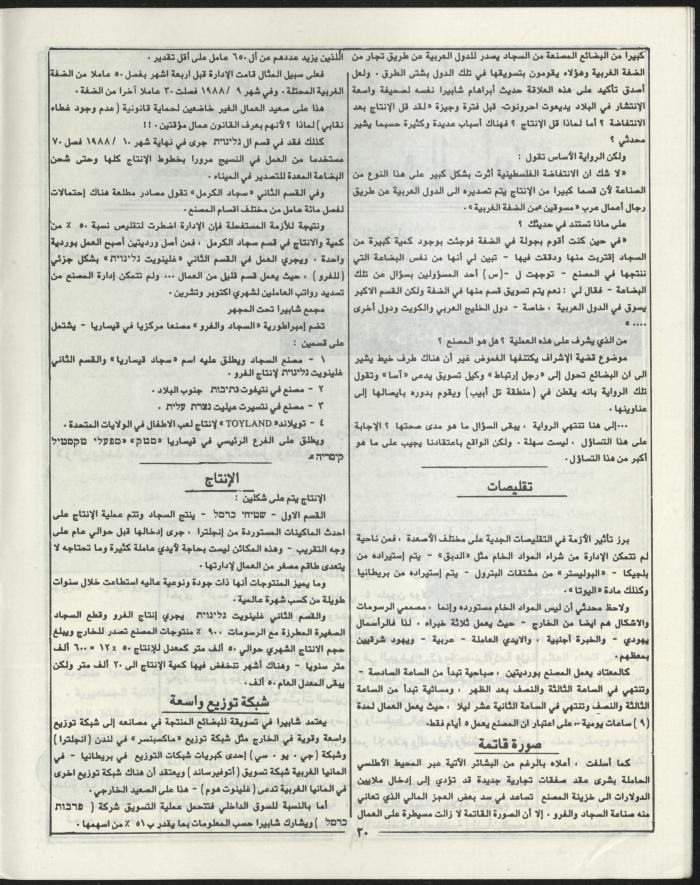 كبيرا من البضائع المصنعة من السجاد يصدر للدول العربية عن طريق تجار من
الضفة الغربية وهؤلاء يقومون بتسويقها في تلك الدول بشتى الطرق . ولعل
أصدق تأكيد على هذه العلاقة حديث أبراهام شابيرا نفسه لصحيفة واسعة
الإنتشار في البلاد يديعوت احرونوت. قبل فترة وجيزة «لقد قل الإنتاج بعد
الانتفاضة ؟ أما لماذا قل الإنتاج ؟ فهناك أسباب عديدة وكثيرة حسبما يشير
محدثي ؟
ولكن الرواية الأساس تقول :
«لا شك ان الانتفاضة الفلسطينية أثرت بشكل كبير على هذا النوع من
الصناعة لأن قسما كبيرا من الإنتاج يتم تصديره الى الدول العربية عن طريق
رجال أعمال عرب «مسوقين «من الضفة الغربية» .
على ماذا تستند في حديثك ؟
«في حين كنت أقوم بجولة في الضفة فوجئت بوجود كمية كبيرة من
السجاد إقتربت منها ودققت فيها - تبين لي أنها من نفس البضاعة التي
ننتجها في المصنع - توجهت ل -(س) أحد المسؤولين بسؤال عن تلك
البضاعة - فقال لي : نعم يتم تسويق قسم منها في الضفة ولكن القسم الاكبر
يسوق في الدول العربية ، خاصة - دول الخليج العربي والكويت ودول أخرى
.... »
من الذي يشرف على هذه العملية ؟ هل هو المصنع ؟
موضوع قضية الإشراف يكتنفها الغموض غير أن هناك طرف خيط يشير
الى ان البضائع تحول إلى «رجل إرتباط» وكيل تسويق يدعى «آسا» وتقول
تلك الرواية بانه يقطن في (منطقة تل أبيب) ويقوم بدوره بايصالها إلى
عناوينها .
...إلى هنا تنتهي الرواية ، يبقى السؤال ما هو مدى صحتها ؟ الإجابة
على هذا التساؤل . ليست سهلة . ولكن الواقع باعتقادنا يجيب على ما هو
أكبر من هذا التساؤل.
تقليصات
برز تأثير الأزمة في التقليصات الجدية على مختلف الأصعدة ، فمن ناحية
لم تتمكن الإدارة من شراء المواد الخام مثل «الدبق» - يتم إستيراده من
بلجيكا - «البوليستر» من مشتقات البترول - يتم إستيراده من بريطانيا
وكذلك مادة «اليوتا» .
ولاحظ محدثي أن ليس المواد الخام مستورده وإنما ، مصممي الرسومات
والاشكال هم ايضا من الخارج - حيث يعمل ثلاثة خبراء . لذا فالرأسمال
يهودي - والخبرة أجنبية ، والايدي العاملة - عربية - ويهود شرقيين
بمعظمهم.
كالمعتاد يعمل المصنع بورديتين ، صباحية تبدأ من الساعة السادسة -
وتنتهي في الساعة الثالثة والنصف بعد الظهر ، ومسائية تبدأ من الساعة
الثالثة والنصف وتنتهي في الساعة الثانية عشر ليلا ، حيث يعمل العمال لمدة
(٩) ساعات يومية ،- على اعتبار ان المصنع يعمل ٥ أيام فقط.
صورة قاتمة
كما أسلفت ، أعلاه بالرغم من البشائر الآتية عبر المحيط الأطلسي
الحاملة بشرى عقد صفقات تجارية جديدة قد تؤدي إلى إدخال ملايين
الدولارات الى خزينة المصنع تساعد في سد بعض العجز المالي الذي تعاني
منه صناعة السجاد والفرو . إلا أن الصورة القاتمة لا زالت مسيطرة على العمال
اللذين يزيد عددهم عن أل ٦٥٠ عامل على أقل تقدير .
فعلى سبيل المثال قامت الإدارة قبل اربعة اشهر بفصل ٥٠ عاملا من الضفة
الغربية المحتلة . وفي شهر ٩ / ١٩٨٨ فصلت ٣٠ عاملا آخرا من الضفة .
هذا على صعيد العمال الغير خاضعين لحماية قانونية (عدم وجود غطاء
نقابي) لماذا ؟ لأنهم بعرف القانون عمال مؤقتين . !!
كذلك فقد في قسم ال גלינוית جرى في نهاية شهر ١٠ / ١٩٨٨ فصل ٧٠
مستخدما من العمل في النسيج مرورا بخطوط الإنتاج كلها وحتى شحن
البضاعة المعدة للتصدير في الميناء .
وفي القسم الثاني «سجاد الكرمل» تقول مصادر مطلعة هناك إحتمالات
لفصل مائة عامل من مختلف اقسام المصنع .
ونتيجة للأزمة المستفحلة فإن الإدارة اضطرت لتقليص نسبة ٥٠ ٪ من
كمية والانتاج في قسم سجاد الكرمل ، فمن أصل ورديتين أصبح العمل بوردية
واحدة . ويجري العمل في القسم الثاني «غلينويت גלינוית» بشكل جزئي
(للفرو) ، حيث يعمل قسم قليل من العمال ... ولم تتمكن إدارة المصنع من
تسديد رواتب العاملين لشهري اكتوبر وتشرين .
مجمع شابيرا تحت المجهر
تضم إمبراطورية «السجاد والفرو» مصنعا مركزيا في قيساريا - يشتمل
على قسمين :
١ - مصنع السجاد ويطلق عليه اسم «سجاد قيساريا» والقسم الثاني
غلينويت גלינוית لإنتاج الفرو .
٢ - مصنع في نتيفوت נתיבות جنوب البلاد .
٣ - مصنع في نتسيرت عيليت נצרת עלית .
٤ - تويلاند» TOYLAND» لإنتاج لعب الاطفال في الولايات المتحدة .
ويطلق على الفرع الرئيسي في قيساريا «מטק» «מפעלי טקסטיל
קיסריה»
الإنتاج
الإنتاج يتم على شكلين :
القسم الاول - שטיחי כרמל - ينتج السجاد وتتم عملية الإنتاج على
احدث الماكينات المستوردة من إنجلترا ، جرى إدخالها قبل حوالي عام على
وجه التقريب - وهذه المكائن ليست بحاجة لأيدي عاملة كثيرة وما تحتاجه لا
يتعدى طاقم مصغر من العمال لإدارتها .
وما يميز المنتوجات أنها ذات جودة ونوعية عاليه استطاعت خلال سنوات
طويلة من كسب شهرة عالمية .
والقسم الثاني غلينويت גלינוית يجري إنتاج الفرو وقطع السجاد
الصغيرة المطرزة مع الرسومات ٩٠٪ منتوجات المصنع تصدر للخارج ويبلغ
حجم الانتاج الشهري حوالي ٥٠ ألف متر كمعدل للإنتاج ٥٠ × ١٢ = ٦٠٠ ألف
متر سنويا - وهناك أشهر تنخفض فيها كمية الإنتاج الى ٢٠ ألف متر ولكن
يبقى المعدل العام ٥٠ ألف .
شبكة توزيع واسعة
يعتمد شابيرا في تسويقة للبضائع المنتجة في مصانعه إلى شبكة توزيع
واسعة وقوية في الخارج مثل شبكة توزيع «ماكسبنسر» في لندن (انجلترا )
وشبكة (جي . يو . سي) إحدى كبريات شبكات التوزيع في بريطانيا - في
المانيا الغربية شبكة تسويق (أتوفيرساند) ويعتقد أن هناك شبكة توزيع اخرى
في المانيا الغربية تدعى (غلينوت هوم) - هذا على الصعيد الخارجي .
أما بالنسبة للسوق الداخلي فتتحمل عملية التسويق شركة ( מרבות
כרמל ) ويشارك شابيرا حسب المعلومات بما يقدر ب ٥١ ٪ من اسهمها .
٢٠